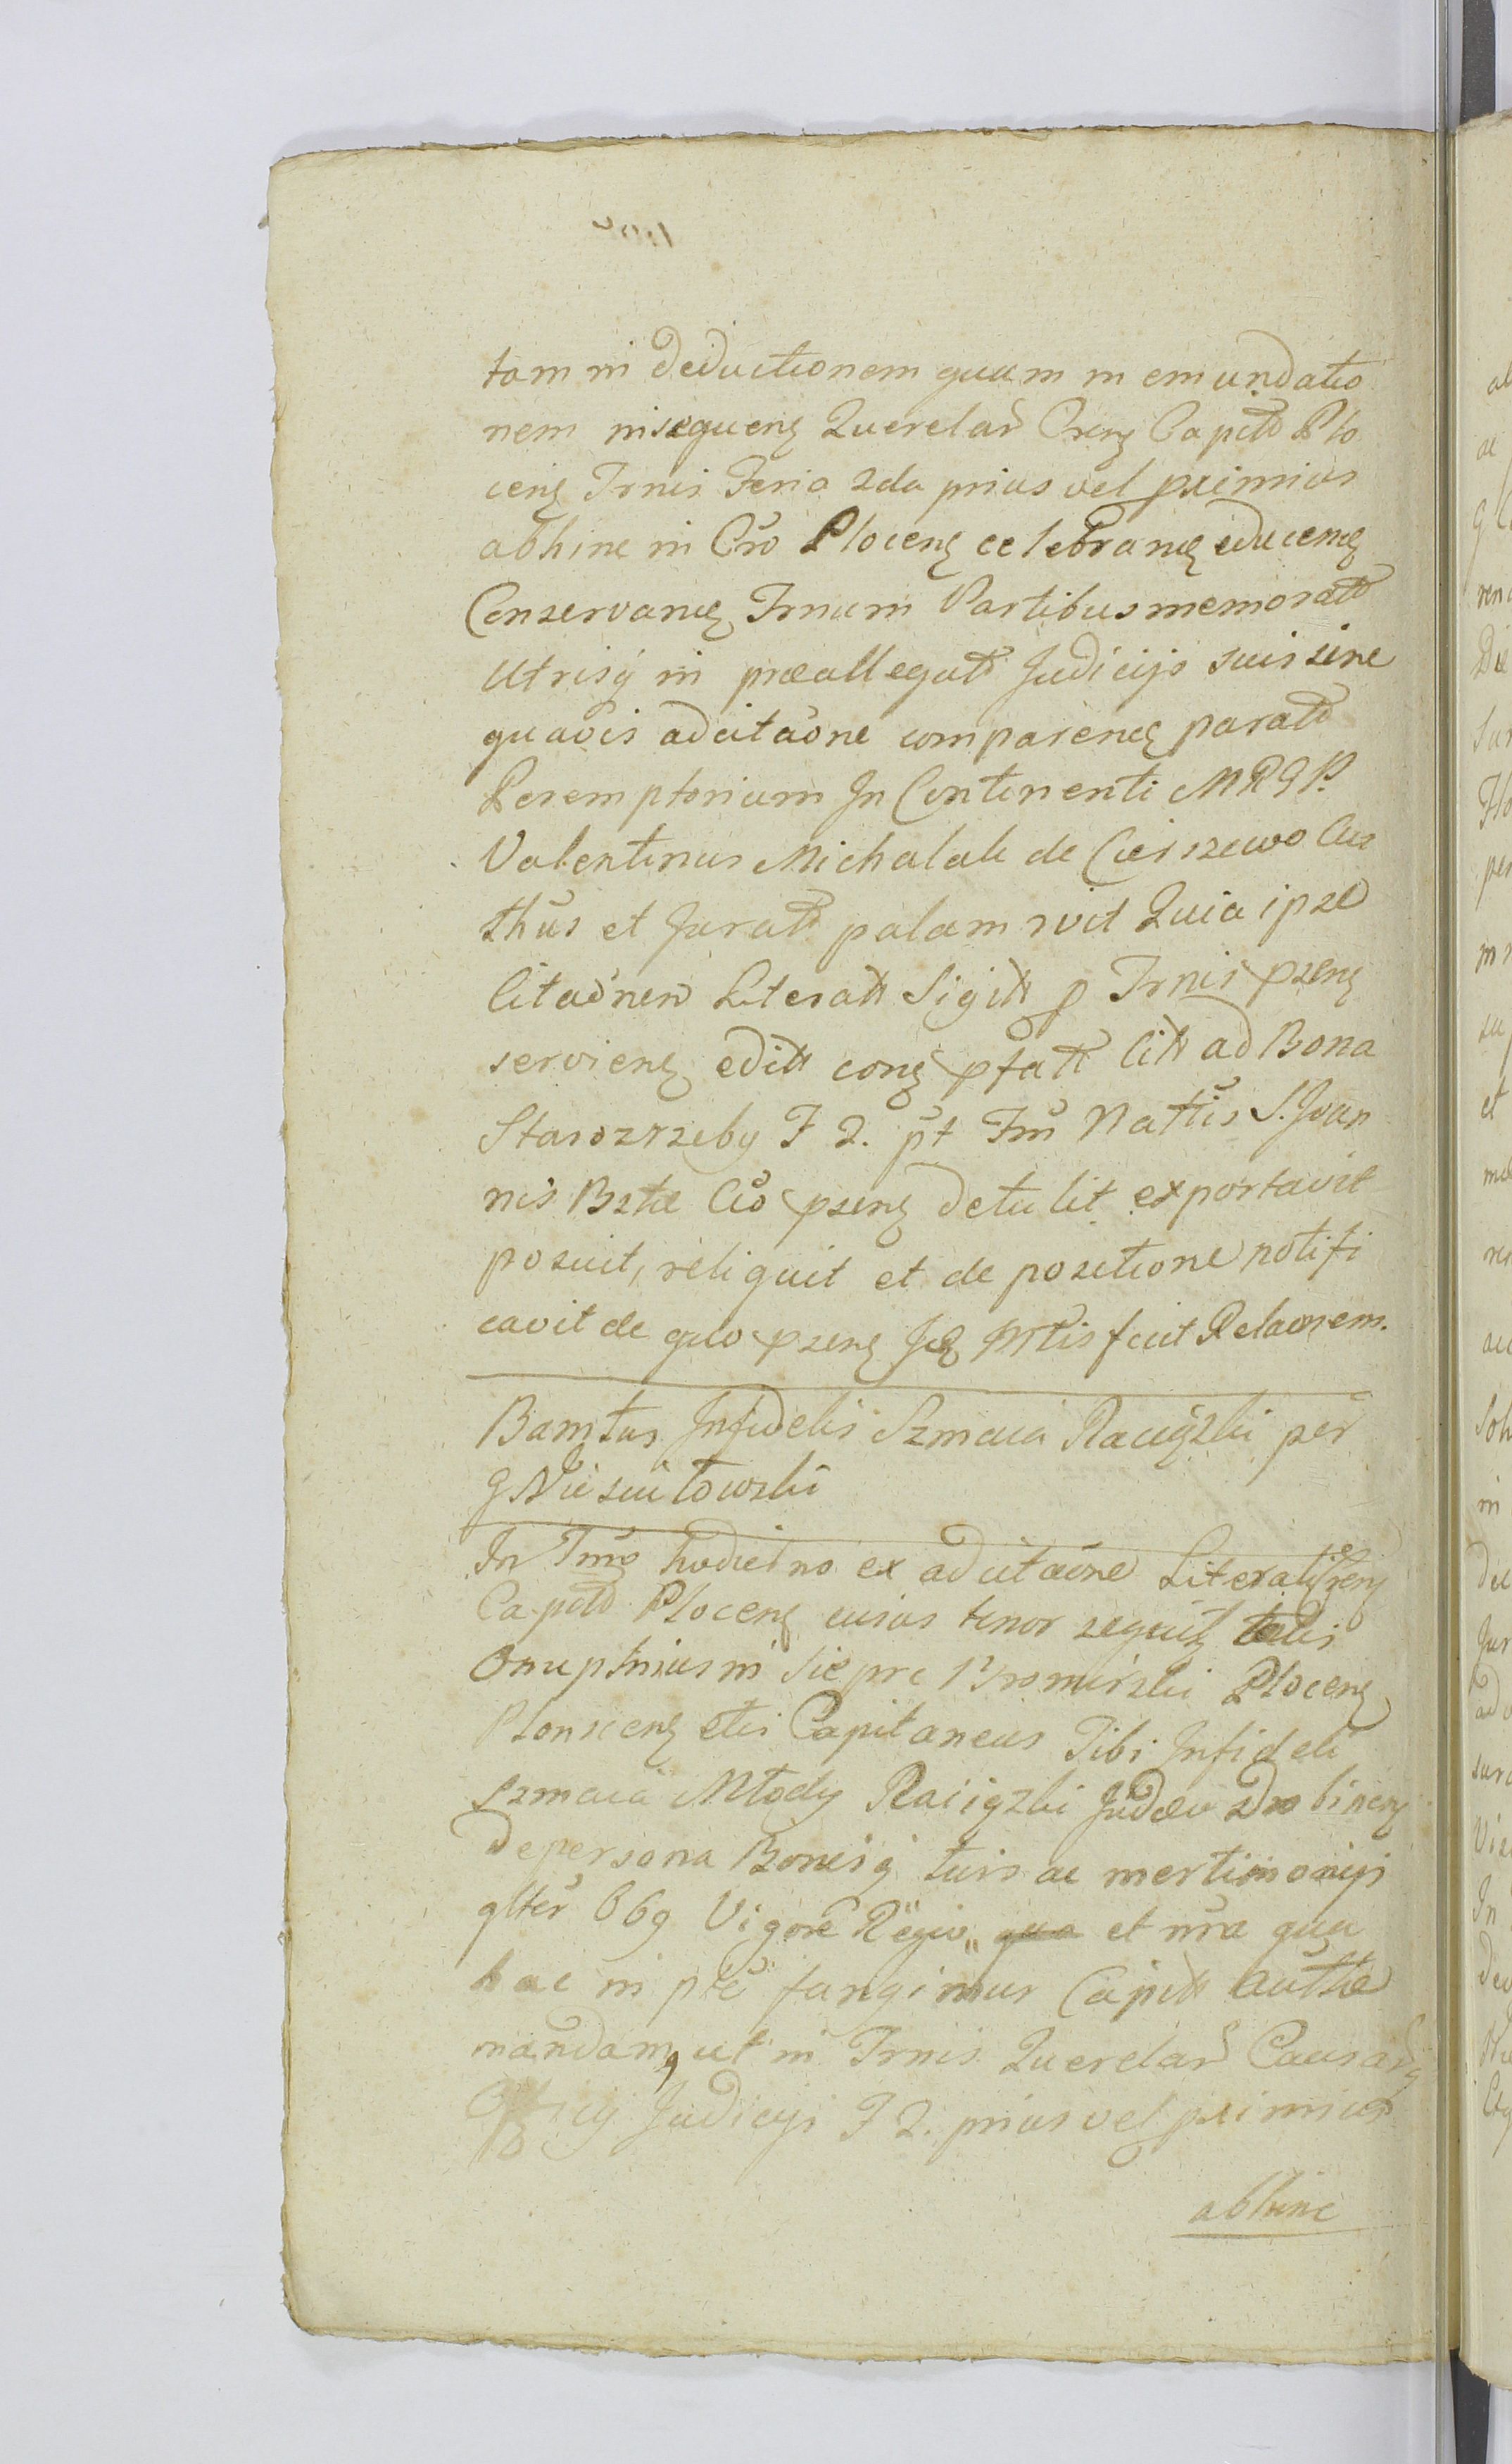 tam in deductionem quam in emundatio
nem insequenς Querelar̃ Crenς Capitt Plo
cenς Trnis Feria 2da prius vel pximius
abhinc in Crõ Plocenς celebranς educenς
Conservanς Trnum Partibus memoratt
Utrisq in præallegatt Judicijs suis sine
quavis adcitaõne comparenς paratt
Peremptorium In Continenti MRGP.
Valentinus Michalak de Cierszewo Cus
thũs et Juratt palam rvit Quia ipse
Citaõnen Literatt Sigitt p Trnis pzenς
servienς editt conς pfatt Citt ad Bona
Starozrzeby F 2. p̃t Fm̃ Nattis S. Joan
nis Bztæ Cio pzenς detulit exportavit
posuit, reliquit et de positione notifi
cavit de quo pzenς Jς Mtis fecit Relaõnem.
Bamtus Infidelis Szmaia Raciązki per
G Niesiułowski
In Tm̃o hodierno ex adcitaõne Literatt
Capitt Plocenς cuius tenor sequitς talis
Onuphrius in Sieprc Bromirski Plocenς
Plonscenς etis Capitaneus Tibi Infideli
Szmaia Młody Raciązki Judæo Drobinenς
de persona Bonisq tuis ac mertimonijs
glter̃ Obg Vigore Regio, qua et nr̃a qua
hac in pte fungimur Capitt autte
mandamς ut in Trnis Querelar̃ Causar̃q
Officij Judicijs F 2. prius vel pximius
abhinc